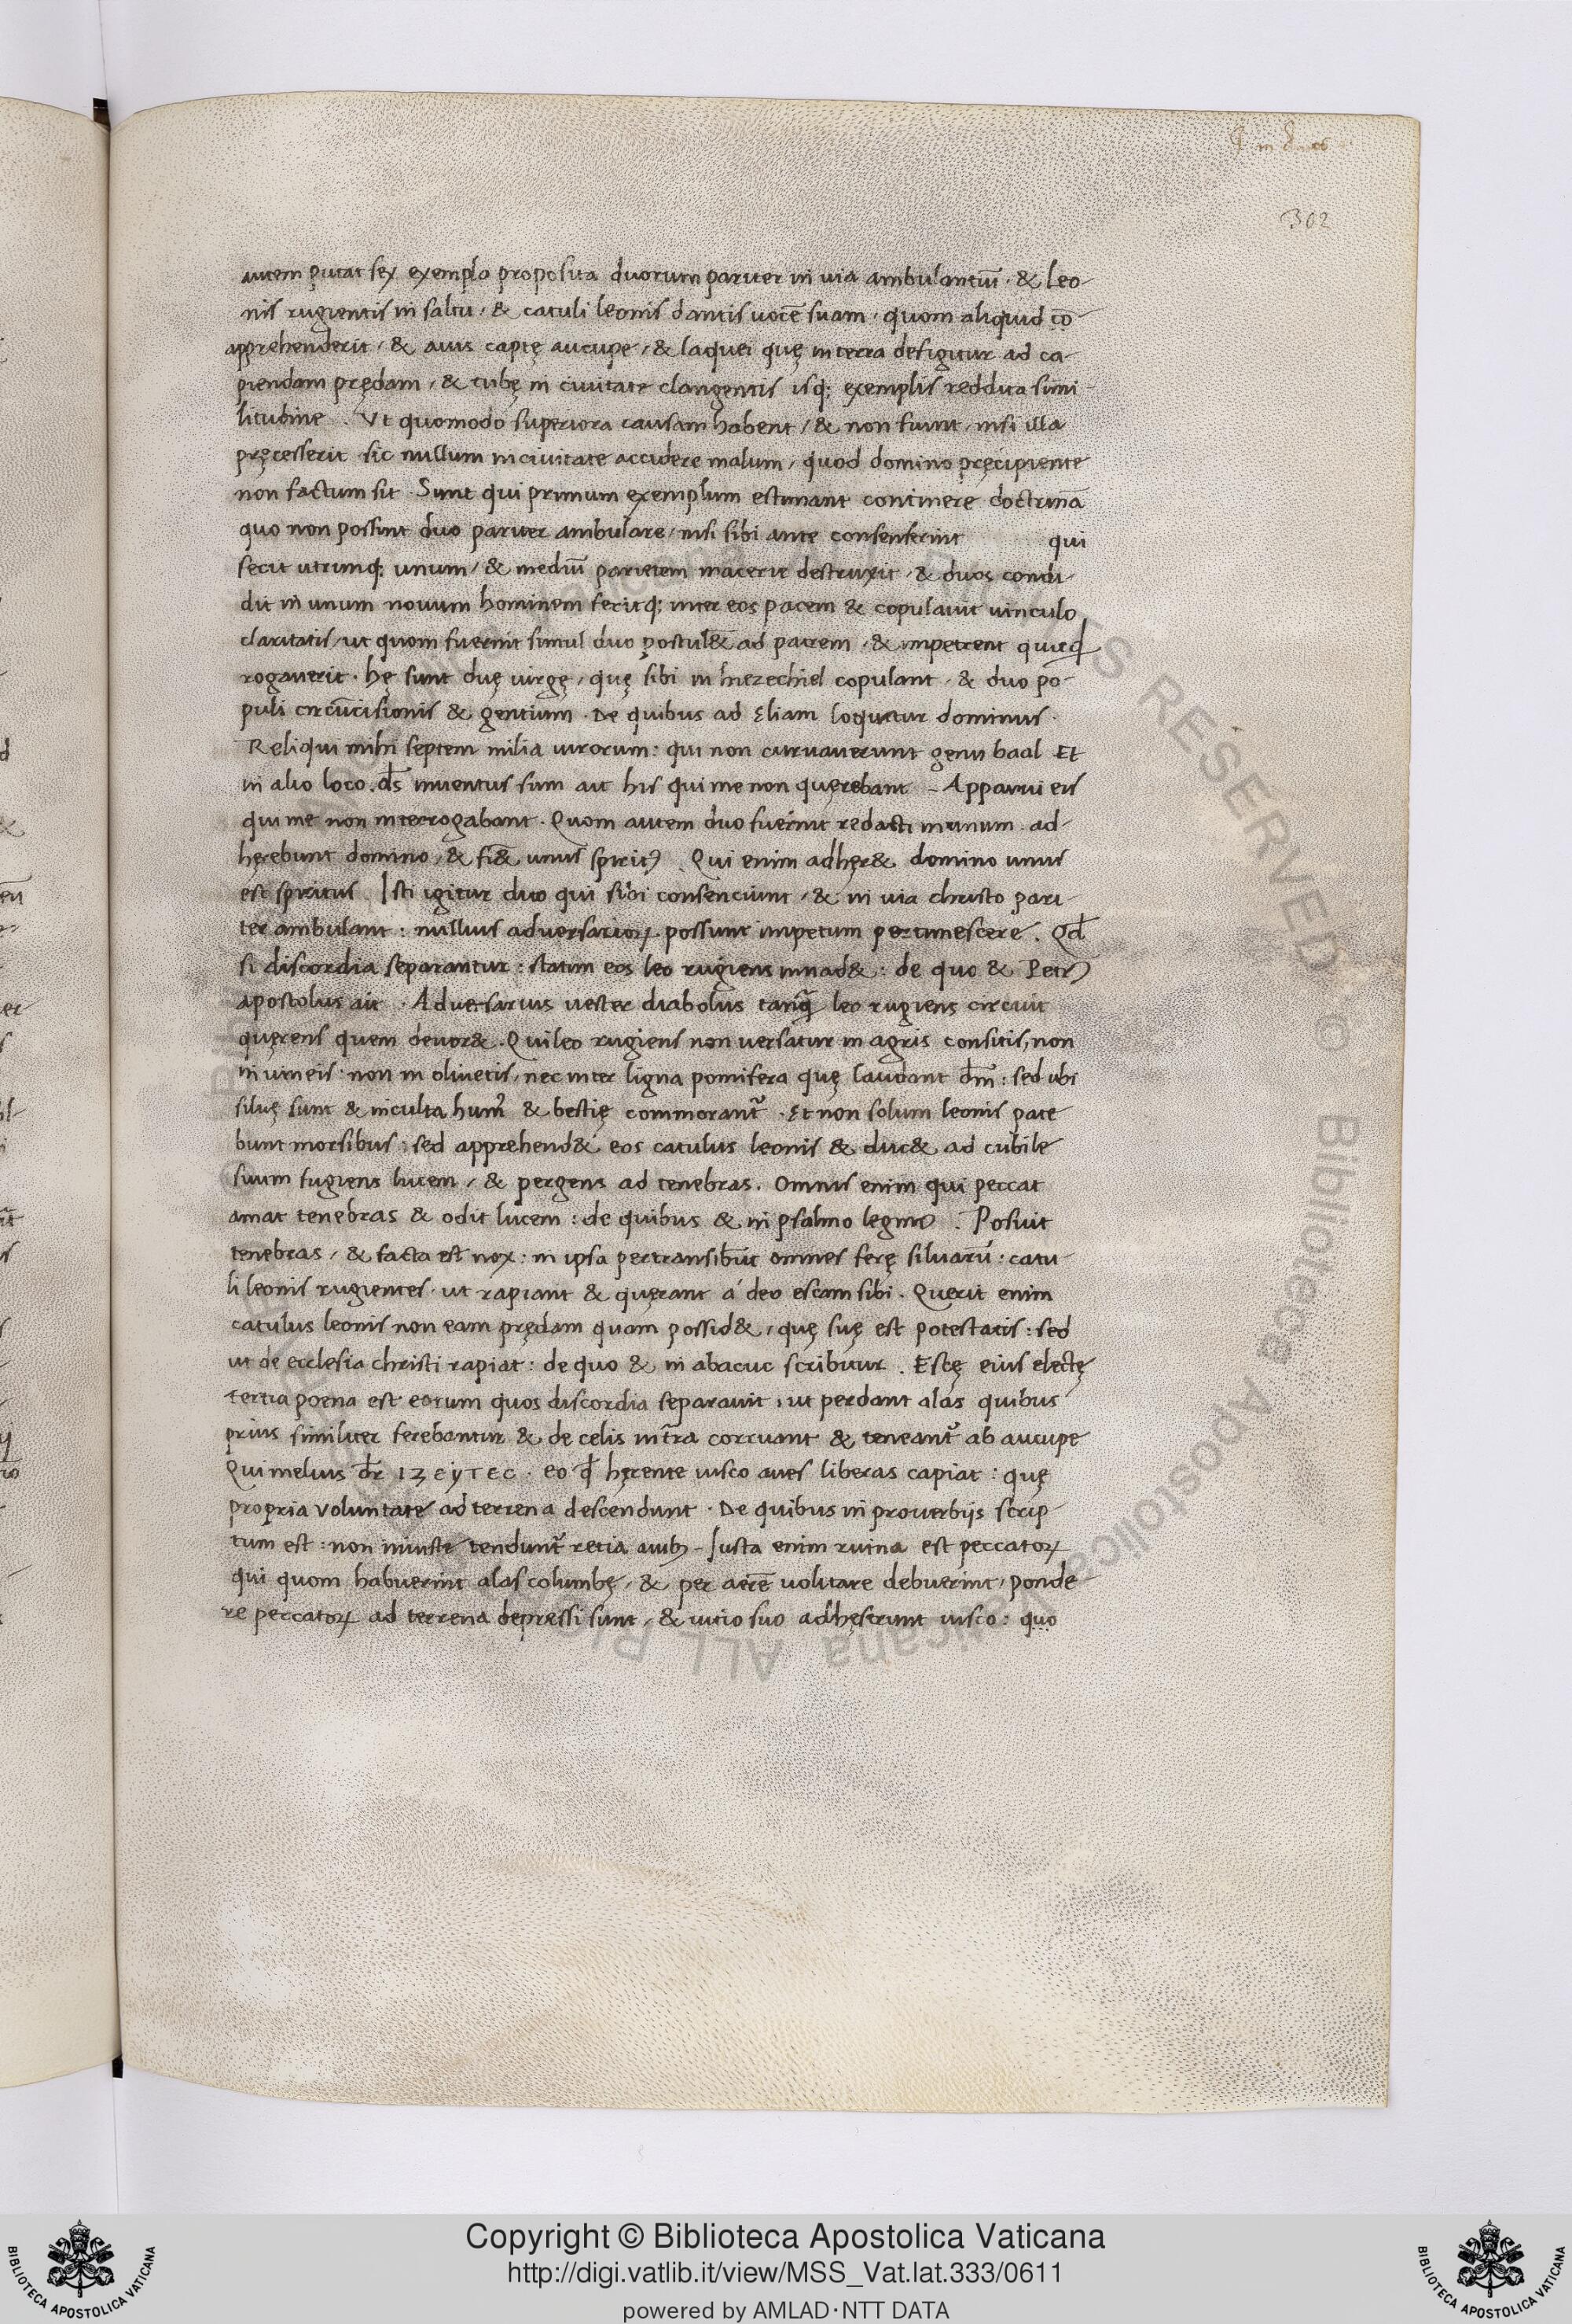 302
autem putat sex exempla proposita duorum pariter in uia ambulantiũ · & leo-
nis rugientis in saltu / & catuli leonis dantis uocẽ suam / quom aliquid cõ-
apprehenderit / & auis captę aucupe / & laquei quę in terra defigitur ad ca-
piendam prędam / & tubę in ciuitate clangentis isq; exemplis reddita simi-
litudine . Vt quomodo superiora causam habent / & non fiunt / nisi illa
pręcesserit sic nullum in ciuitate accidere malum / quod domino pręcipiente
non factum sit Sunt qui primum exemplum estimant continere doctrinã
quo non possint duo pariter ambulare / nisi sibi ante consenserint qui
fecit utrunq; unum / & mediũ parietem macerie destruxit / & duos condi-
dit in unum nouum hominem fecitq; inter eos pacem & copulauit uinculo
claritatis / ut quom fuerint simul duo postul& ad patrem / & impetrent quicq̃
rogauerit · hę sunt duę uirgę / quę sibi in hiezechiel copulant / & duo po-
puli circũcisionis & gentium · De quibus ad Eliam loquitur dominus ·
Reliqui mihi septem milia uirorum : qui non curuauerunt genu baal Et
in alio loco . ds̃ inuentus sum ait his qui me non quęrebant - Apparui eis
qui me non interrogabant · Quom autem duo fuerint redacti in unum ad-
hęrebunt domino / & fi& unus spirit9 . Qui enim adhęr& domino unus
est spiritus Isti igitur duo qui sibi consenciunt / & in uia christo pari-
ter ambulant : nullius aduersarioꝝ possunt impetum pertimescere . Qđ
si discordia separantur : statim eos leo rugiens inuad& : de quo & Petr9
apostolus ait · Aduersarius uester diabolus tanq̃ leo rugiens circuit
quęrens quem deuor& · Qui leo rugiens non uersatur in agris consitis, non
in uineis : non in oliuetis, nec inter ligna pomifera quę laudant dm̃ : sed ubi
siluę sunt & inculta hum9 & bestię commorant᷑ · Et non solum leonis pate
bunt morsibus : sed apprehend& eos catulus leonis & duc& ad cubile
suum fugiens lucem / & pergens ad tenebras . Omnis enim qui peccat
amat tenebras & odit lucem : de quibus & in psalmo legim9 . Posuit
tenebras / & facta est nox : in ipsa pertransibũt omnes ferę siluarũ : catu-
li leonis rugientes · ut rapiant & quęrant á deo escam sibi . Querit enim
catulus leonis non eam prędam quam possid& / quę suę est potestatis : sed
ut de ecclesia christi rapiat : de quo & in abacuc scribitur . Escę eius electę
tertia poena est eorum quos discordia separauit , ut perdant alas quibus
prius similiter ferebantur & de celis in t̃ra corruant & teneant᷑ ab aucupe
Qui melius dr̃ IZEYTEC · eo q̃ hęrente uisco aues liberas capiat : quę
propria voluntate ad terrena descendunt · De quibus in prouerbijs scrip-
tum est : non iniuste tendunt᷑ retia auib9 - Iusta enim ruina est peccatoꝝ
qui quom habuerint alas columbę / & per aerẽ uolitare debuerint / ponde-
re peccatoꝝ ad terrena depressi sunt / & uitio suo adhęserunt uisco : quo
Copyright © Biblioteca Apostolica Vaticana
http://digi.vatlib.it/view/MSS_Vat.lat.333/0611
powered by AMLAD·NTT DATA
BIBLIOTECA APOSTOLICA VATICANA
BIBLIOTECA APOSTOLICA VATICANA